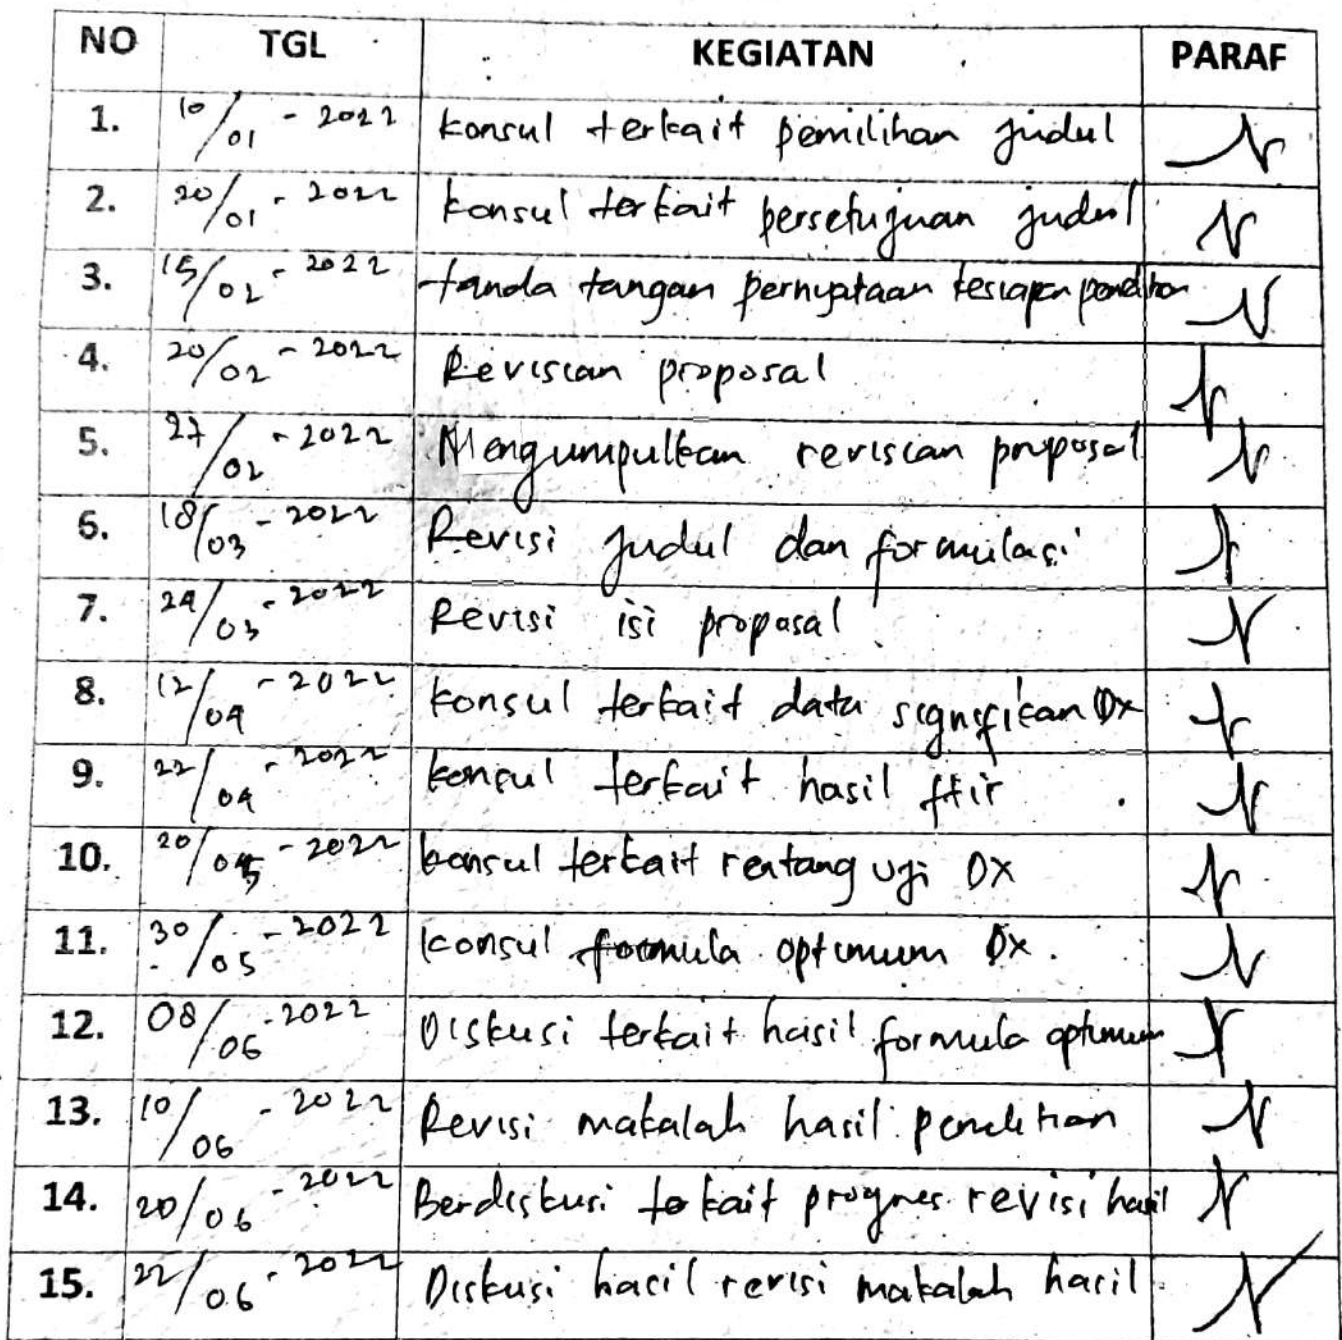 NO TGL KEGIATAN PARAF
1. 10/01 - 2022 konsul terkait pemilihan judul
2. 20/01 - 2022 konsul terkait persetujuan judul
3. 15/02 - 2022 tanda tangan pernyataan kesiapan penelitian
4. 20/02 - 2022 Revisian proposal
5. 27/02 - 2022 Mengumpulkan revisian proposal
6. 18/03 - 2022 Revisi judul dan formulasi
7. 24/03 - 2022 Revisi isi proposal
8. 12/04 - 2022 konsul terkait data signifikan Dx
9. 22/04 - 2022 konsul terkait hasil ftir
10. 20/05 - 2022 konsul terkait rentang uji DX
11. 30/05 - 2022 konsul formula optimum Dx.
12. 08/06 - 2022 Diskusi terkait hasil formula optimum
13. 10/06 - 2022 Revisi makalah hasil penelitian
14. 20/06 - 2022 Berdiskusi terkait progres revisi hasil
15. 22/06 - 2022 Diskusi hasil revisi makalah hasil